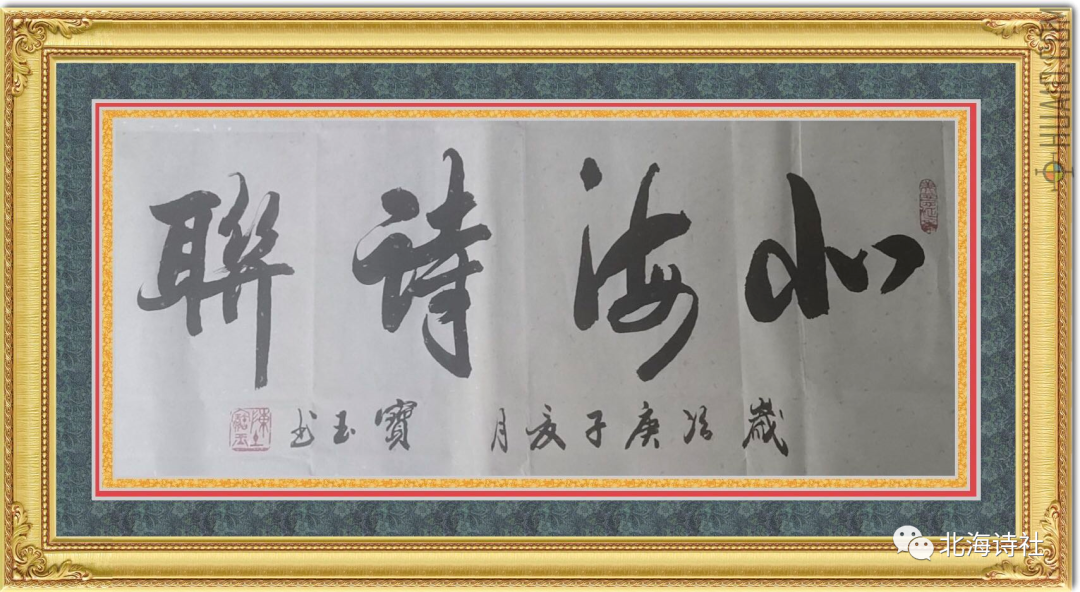 北海詩聯
歲次庚子亥月 寶玉书
北海诗社